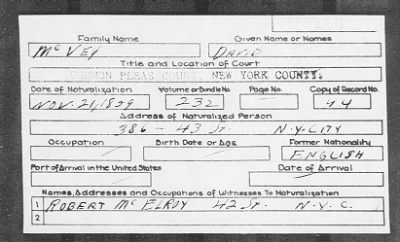 Family Name Given Name or Names
McVey David
Title and Location of Court
COMMON PLEAS COURT, NEW YORK COUNTY.
Date of Naturalization Volume or Bundle No. Page No. Copy of Record No.
Nov. 21, 1859 232 44
Address of Naturalized Person
386 - 43 St. N.Y. CITY
Occupation Birth Date or Age Former Nationality
ENGLISH
Port of Arrival in the United States Date of Arrival
Names, Addresses and Occupations of Witnesses To Naturalization
1 ROBERT McELROY 42 ST. N.Y.C.
2